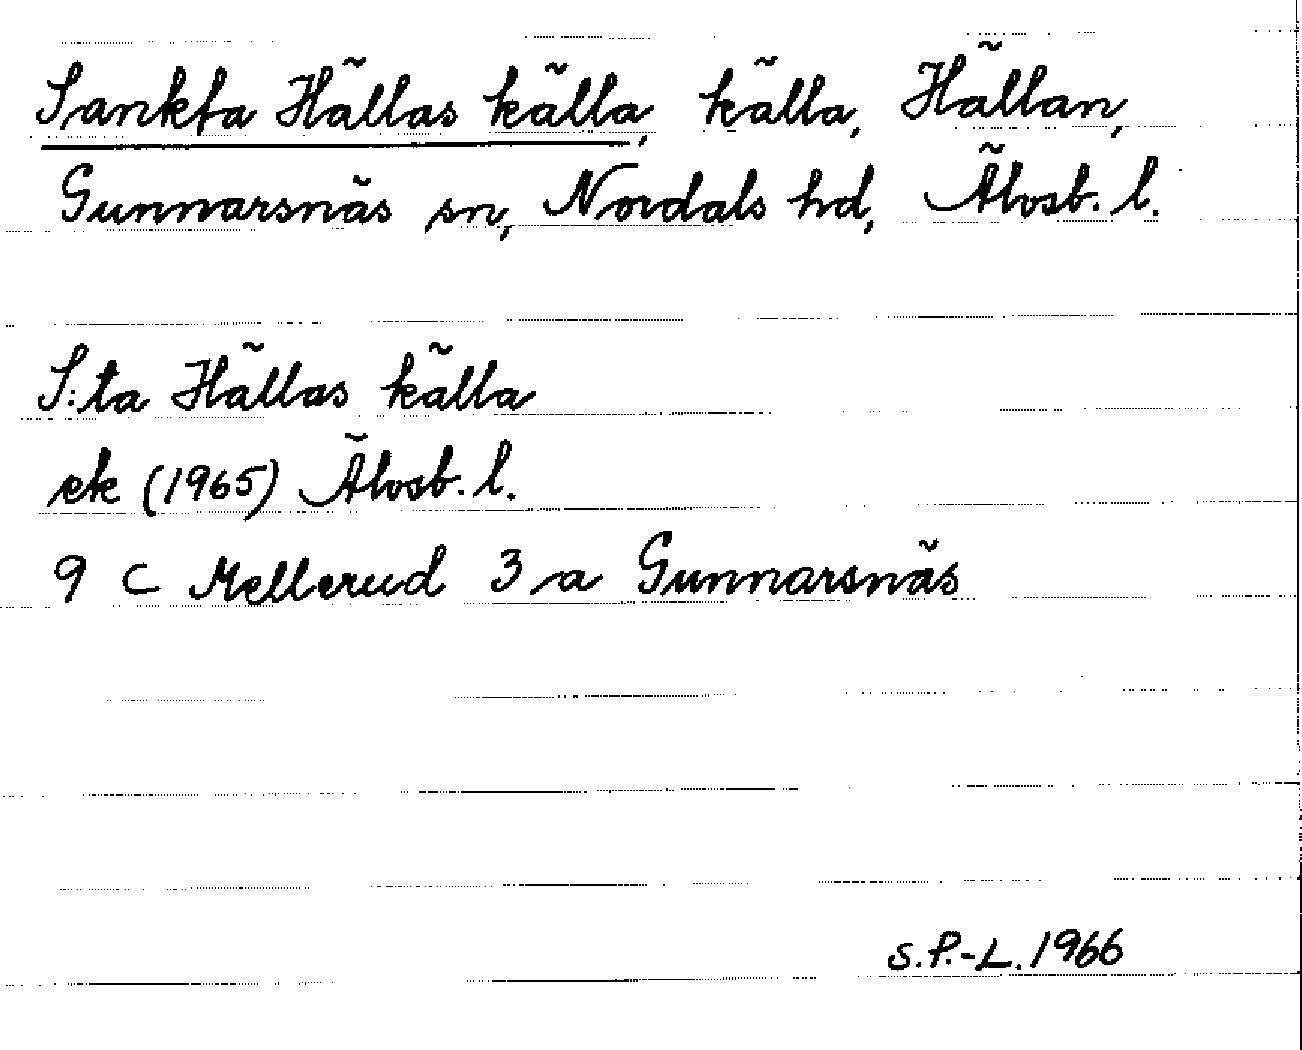 Sankta Hällas källa, källa, Hällan,
Gunnarsnäs sn, Nordals hd, Älvsb. l.
S:ta Hällas källa
ek (1965) Älvsb. l.
9 C Mellerud 3 a Gunnarsnäs
S.P.-L. 1966